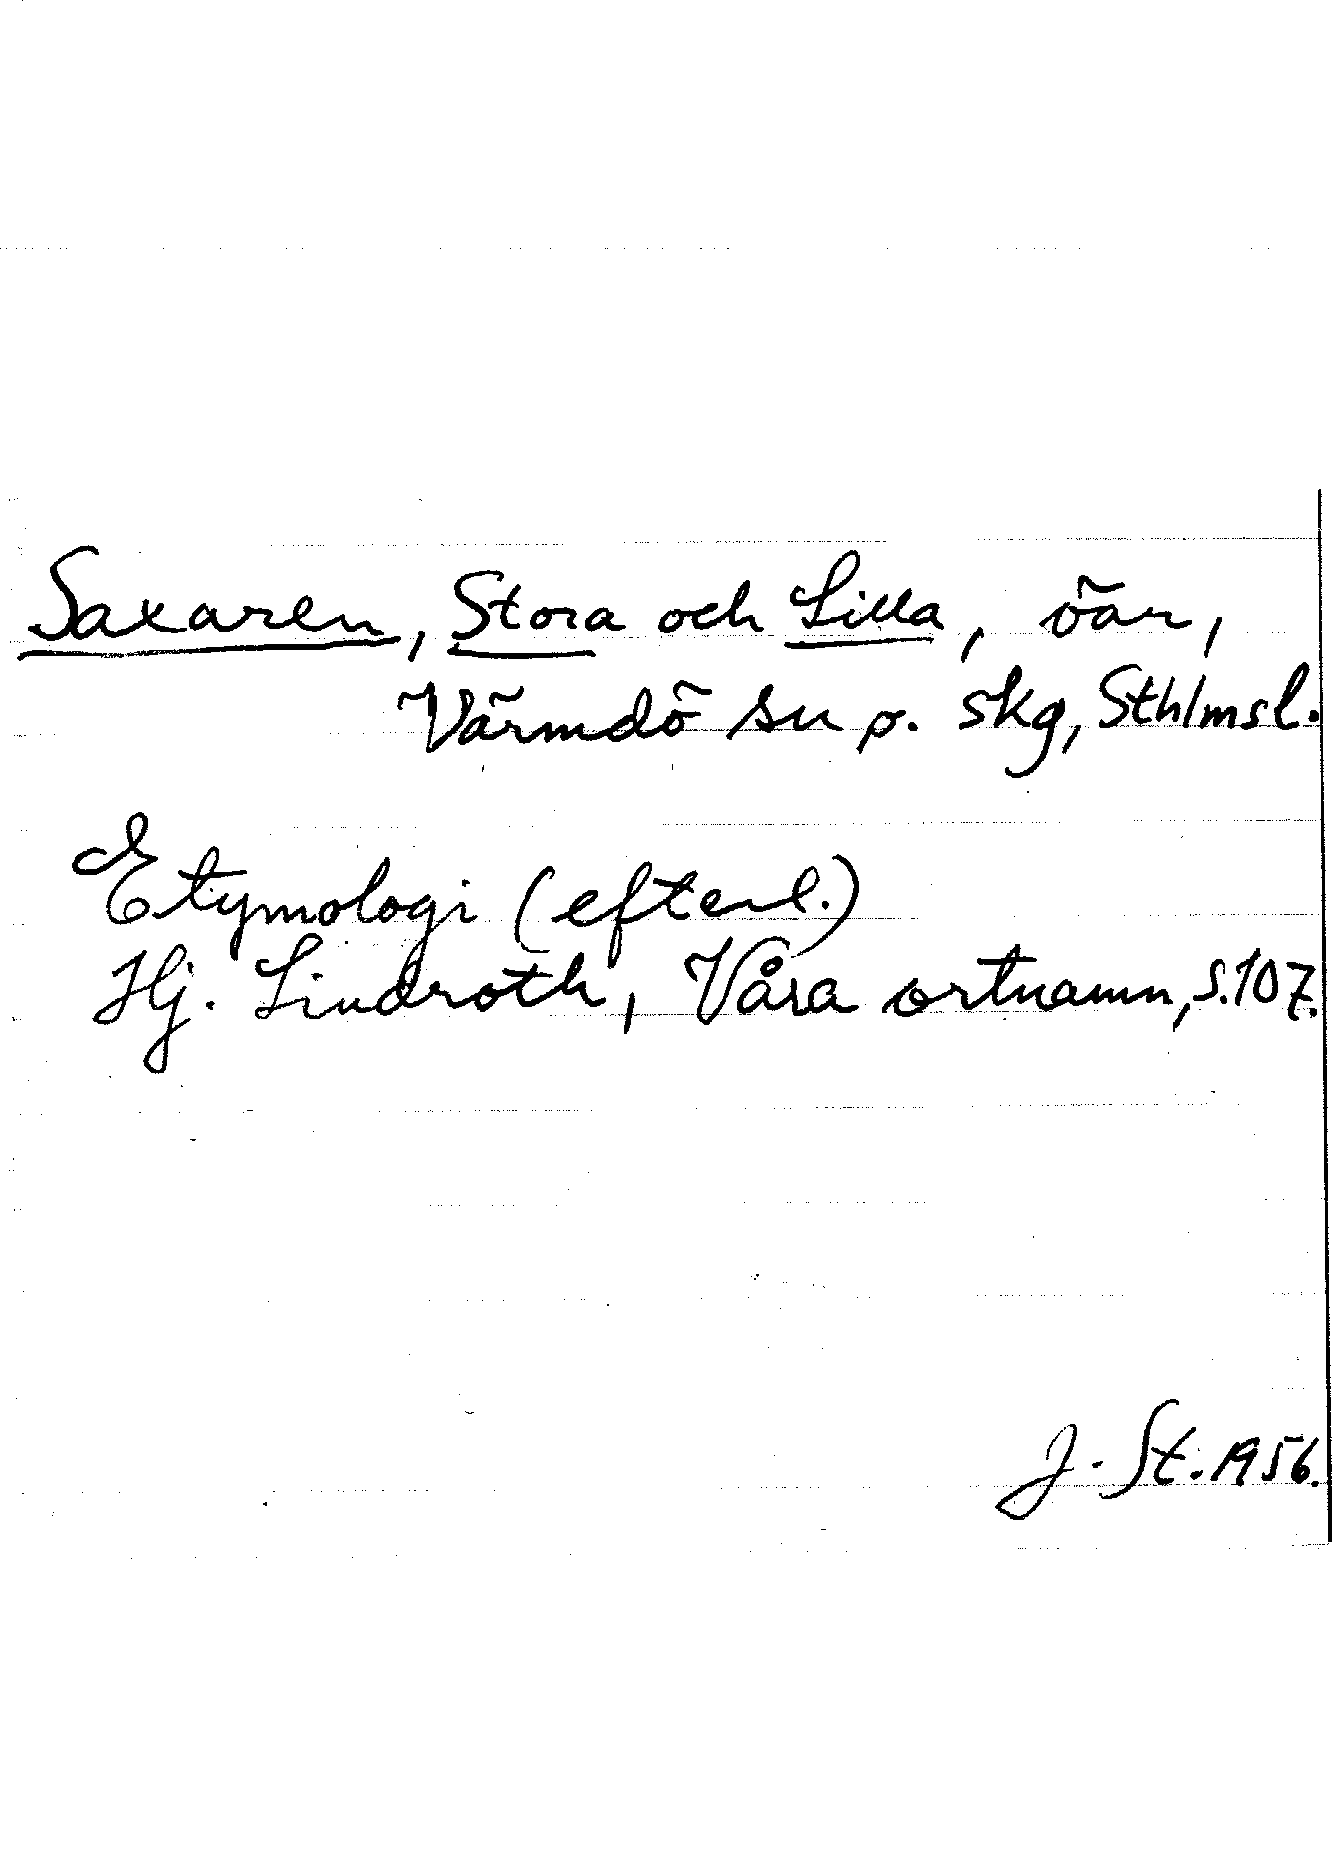 Saxaren, Stora och Lilla, öar,
Värmdö sn o. skg, Sthlmsl.
Etymologi (efterl.)
Hj. Lindroth, Våra ortnamn, s.107.
J. St. 1956.